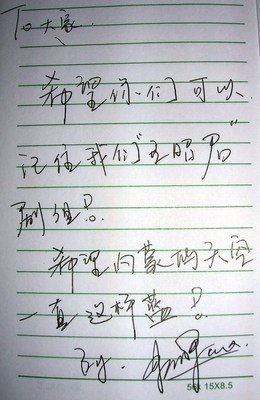 To 大家:
希望你们可以
记住我们"王昭君"
剧组!
希望内蒙的天空
一直这样蓝!
By.
15X8.5